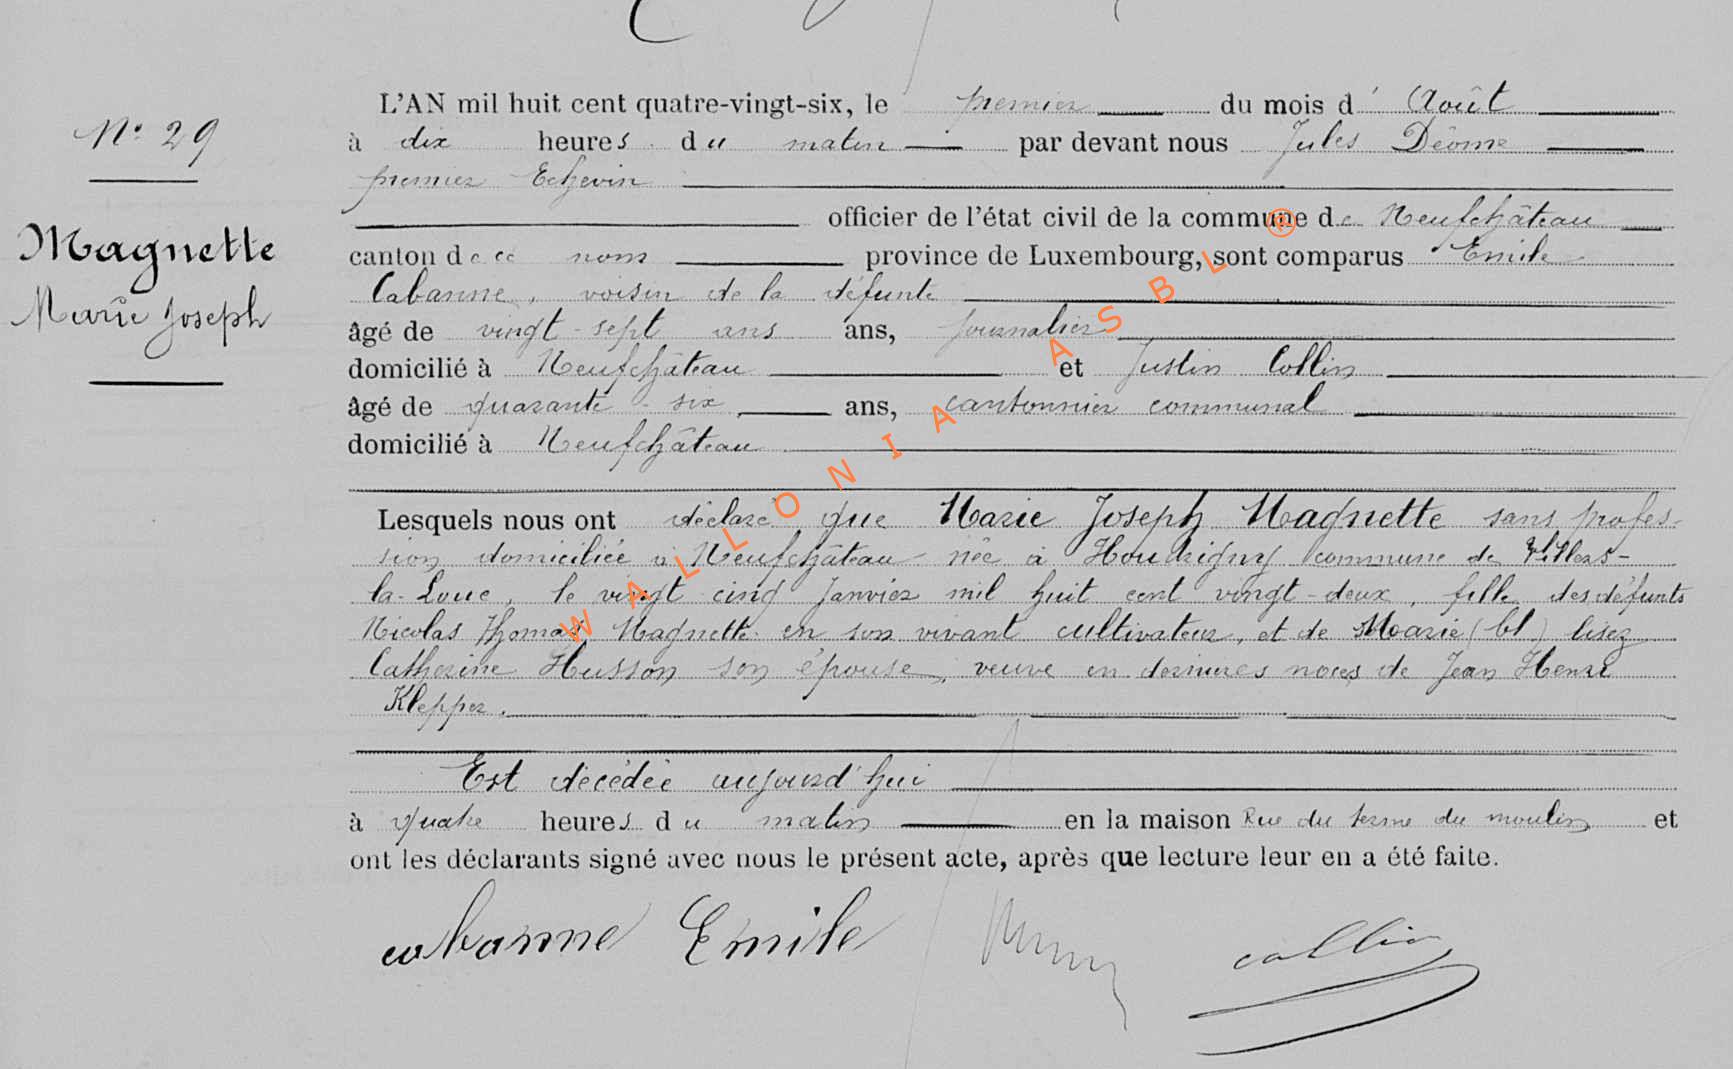 N° 29
Magnette
Marie Joseph
L'AN mil huit cent quatre-vingt-six, le premier du mois d' Août
à dix heures du matin par devant nous Jules Déome
premier Echevin
officier de l'état civil de la commune de Neufchâteau
canton de ce nom province de Luxembourg, sont comparus Emile
Cabanne, voisin de la défunte
âgé de vingt-sept ans ans, journalier
domicilié à Neufchâteau et Justin Collin
âgé de quarante-six ans, cantonnier communal
domicilié à Neufchâteau
Lesquels nous ont déclaré que Marie Joseph Magnette sans profes-
sion domiciliée à Neufchâteau née à Houdrigny commune de Villers-
la-Loue, le vingt cinq Janvier mil huit cent vingt-deux, fille des défunts
Nicolas Thomas Magnette en son vivant cultivateur, et de Marie (bl) lisez
Catherine Husson son épouse, veuve en dernières noces de Jean Henri
Klepper.
Est décédée aujourd'hui
à quatre heures du matin en la maison Rue du terme du moulin et
ont les déclarants signé avec nous le présent acte, après que lecture leur en a été faite.
cabanne Emile collin
WALLONIA ASBL ®